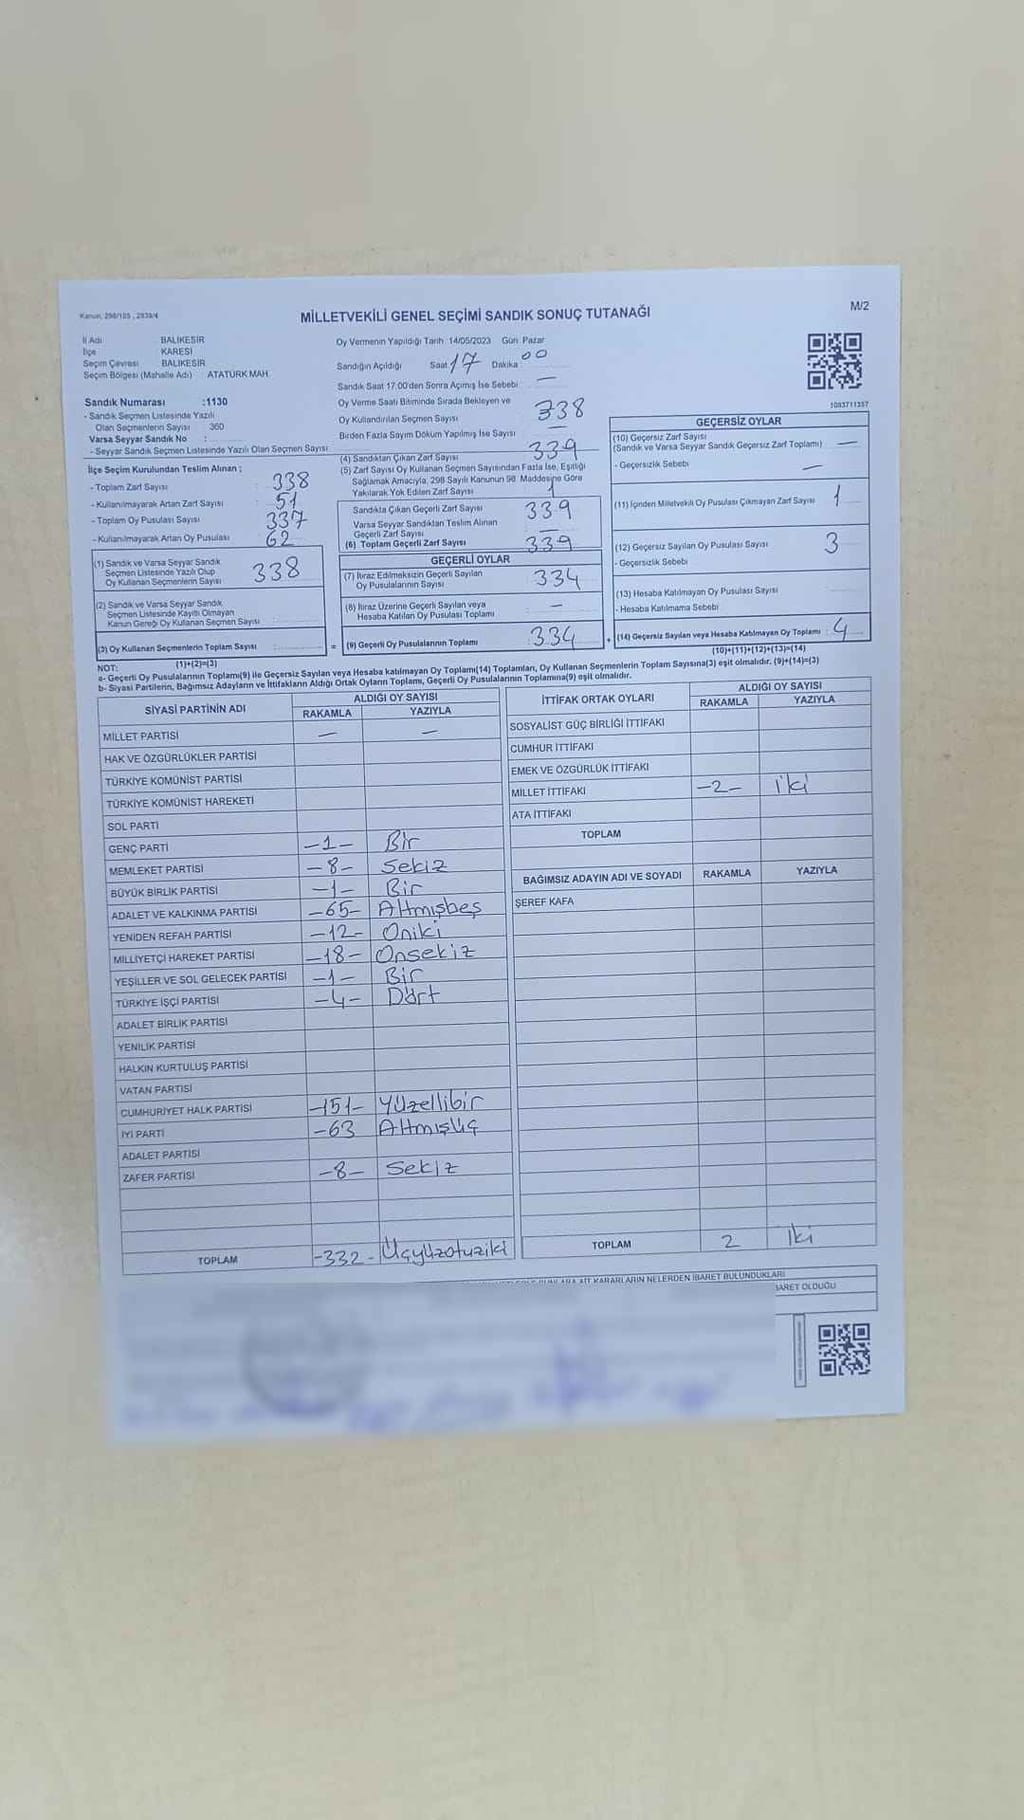 Kanun, 298/105 , 2839/4
MİLLETVEKİLİ GENEL SEÇİMİ SANDIK SONUÇ TUTANAĞI
M/2
İl Adı : BALIKESİR
İlçe : KARESİ
Seçim Çevresi : BALIKESİR
Seçim Bölgesi (Mahalle Adı) : ATATÜRK MAH.
Sandık Numarası :1130
- Sandık Seçmen Listesinde Yazılı
Olan Seçmenlerin Sayısı : 360
Varsa Seyyar Sandık No :
- Seyyar Sandık Seçmen Listesinde Yazılı Olan Seçmen Sayısı :
İlçe Seçim Kurulundan Teslim Alınan ;
- Toplam Zarf Sayısı : 338
- Kullanılmayarak Artan Zarf Sayısı : 51
- Toplam Oy Pusulası Sayısı : 337
- Kullanılmayarak Artan Oy Pusulası : 62
(1) Sandık ve Varsa Seyyar Sandık
Seçmen Listesinde Yazılı Olup
Oy Kullanan Seçmenlerin Sayısı : 338
(2) Sandık ve Varsa Seyyar Sandık
Seçmen Listesinde Kayıtlı Olmayan
Kanun Gereği Oy Kullanan Seçmen Sayısı :
(3) Oy Kullanan Seçmenlerin Toplam Sayısı :
(1)+(2)=(3)
Oy Vermenin Yapıldığı Tarih :14/05/2023 Gün : Pazar
Sandığın Açıldığı Saat 17 Dakika 00
Sandık Saat 17.00'den Sonra Açılmış İse Sebebi : —
Oy Verme Saati Bitiminde Sırada Bekleyen ve
Oy Kullandırılan Seçmen Sayısı : 338
Birden Fazla Sayım Döküm Yapılmış İse Sayısı : —
(4) Sandıktan Çıkan Zarf Sayısı : 339
(5) Zarf Sayısı Oy Kullanan Seçmen Sayısından Fazla İse, Eşitliği
Sağlamak Amacıyla, 298 Sayılı Kanunun 98. Maddesine Göre
Yakılarak Yok Edilen Zarf Sayısı : 1
Sandıkta Çıkan Geçerli Zarf Sayısı : 339
Varsa Seyyar Sandıktan Teslim Alınan
Geçerli Zarf Sayısı : —
(6) Toplam Geçerli Zarf Sayısı : 339
GEÇERLİ OYLAR
(7) İtiraz Edilmeksizin Geçerli Sayılan
Oy Pusulalarının Sayısı : 334
(8) İtiraz Üzerine Geçerli Sayılan veya
Hesaba Katılan Oy Pusulası Toplamı : —
= (9) Geçerli Oy Pusulalarının Toplamı : 334 +
1093711357
GEÇERSİZ OYLAR
(10) Geçersiz Zarf Sayısı
(Sandık ve Varsa Seyyar Sandık Geçersiz Zarf Toplamı) : —
- Geçersizlik Sebebi : —
(11) İçinden Milletvekili Oy Pusulası Çıkmayan Zarf Sayısı : 1
(12) Geçersiz Sayılan Oy Pusulası Sayısı : 3
- Geçersizlik Sebebi :
(13) Hesaba Katılmayan Oy Pusulası Sayısı :
- Hesaba Katılmama Sebebi :
(14) Geçersiz Sayılan veya Hesaba Katılmayan Oy Toplamı : 4
(10)+(11)+(12)+(13)=(14)
NOT:
a- Geçerli Oy Pusulalarının Toplamı(9) ile Geçersiz Sayılan veya Hesaba katılmayan Oy Toplamı(14) Toplamları, Oy Kullanan Seçmenlerin Toplam Sayısına(3) eşit olmalıdır. (9)+(14)=(3)
b- Siyasi Partilerin, Bağımsız Adayların ve İttifakların Aldığı Ortak Oyların Toplamı, Geçerli Oy Pusulalarının Toplamına(9) eşit olmalıdır.
SİYASİ PARTİNİN ADI ALDIĞI OY SAYISI
RAKAMLA YAZIYLA
MİLLET PARTİSİ — —
HAK VE ÖZGÜRLÜKLER PARTİSİ
TÜRKİYE KOMÜNİST PARTİSİ
TÜRKİYE KOMÜNİST HAREKETİ
SOL PARTİ
GENÇ PARTİ -1- Bir
MEMLEKET PARTİSİ -8- Sekiz
BÜYÜK BİRLİK PARTİSİ -1- Bir
ADALET VE KALKINMA PARTİSİ -65- Altmışbeş
YENİDEN REFAH PARTİSİ -12- Oniki
MİLLİYETÇİ HAREKET PARTİSİ -18- Onsekiz
YEŞİLLER VE SOL GELECEK PARTİSİ -1- Bir
TÜRKİYE İŞÇİ PARTİSİ -4- Dört
ADALET BİRLİK PARTİSİ
YENİLİK PARTİSİ
HALKIN KURTULUŞ PARTİSİ
VATAN PARTİSİ
CUMHURİYET HALK PARTİSİ -151- Yüzellibir
İYİ PARTİ -63 Altmışüç
ADALET PARTİSİ
ZAFER PARTİSİ -8- Sekiz
TOPLAM -332- Üçyüzotuziki
İTTİFAK ORTAK OYLARI ALDIĞI OY SAYISI
RAKAMLA YAZIYLA
SOSYALİST GÜÇ BİRLİĞİ İTTİFAKI
CUMHUR İTTİFAKI
EMEK VE ÖZGÜRLÜK İTTİFAKI
MİLLET İTTİFAKI -2- iki
ATA İTTİFAKI
TOPLAM
BAĞIMSIZ ADAYIN ADI VE SOYADI RAKAMLA YAZIYLA
ŞEREF KAFA
TOPLAM 2 İki
KARARLARIN NELERDEN İBARET BULUNDUKLARI
İBARET OLDUĞU